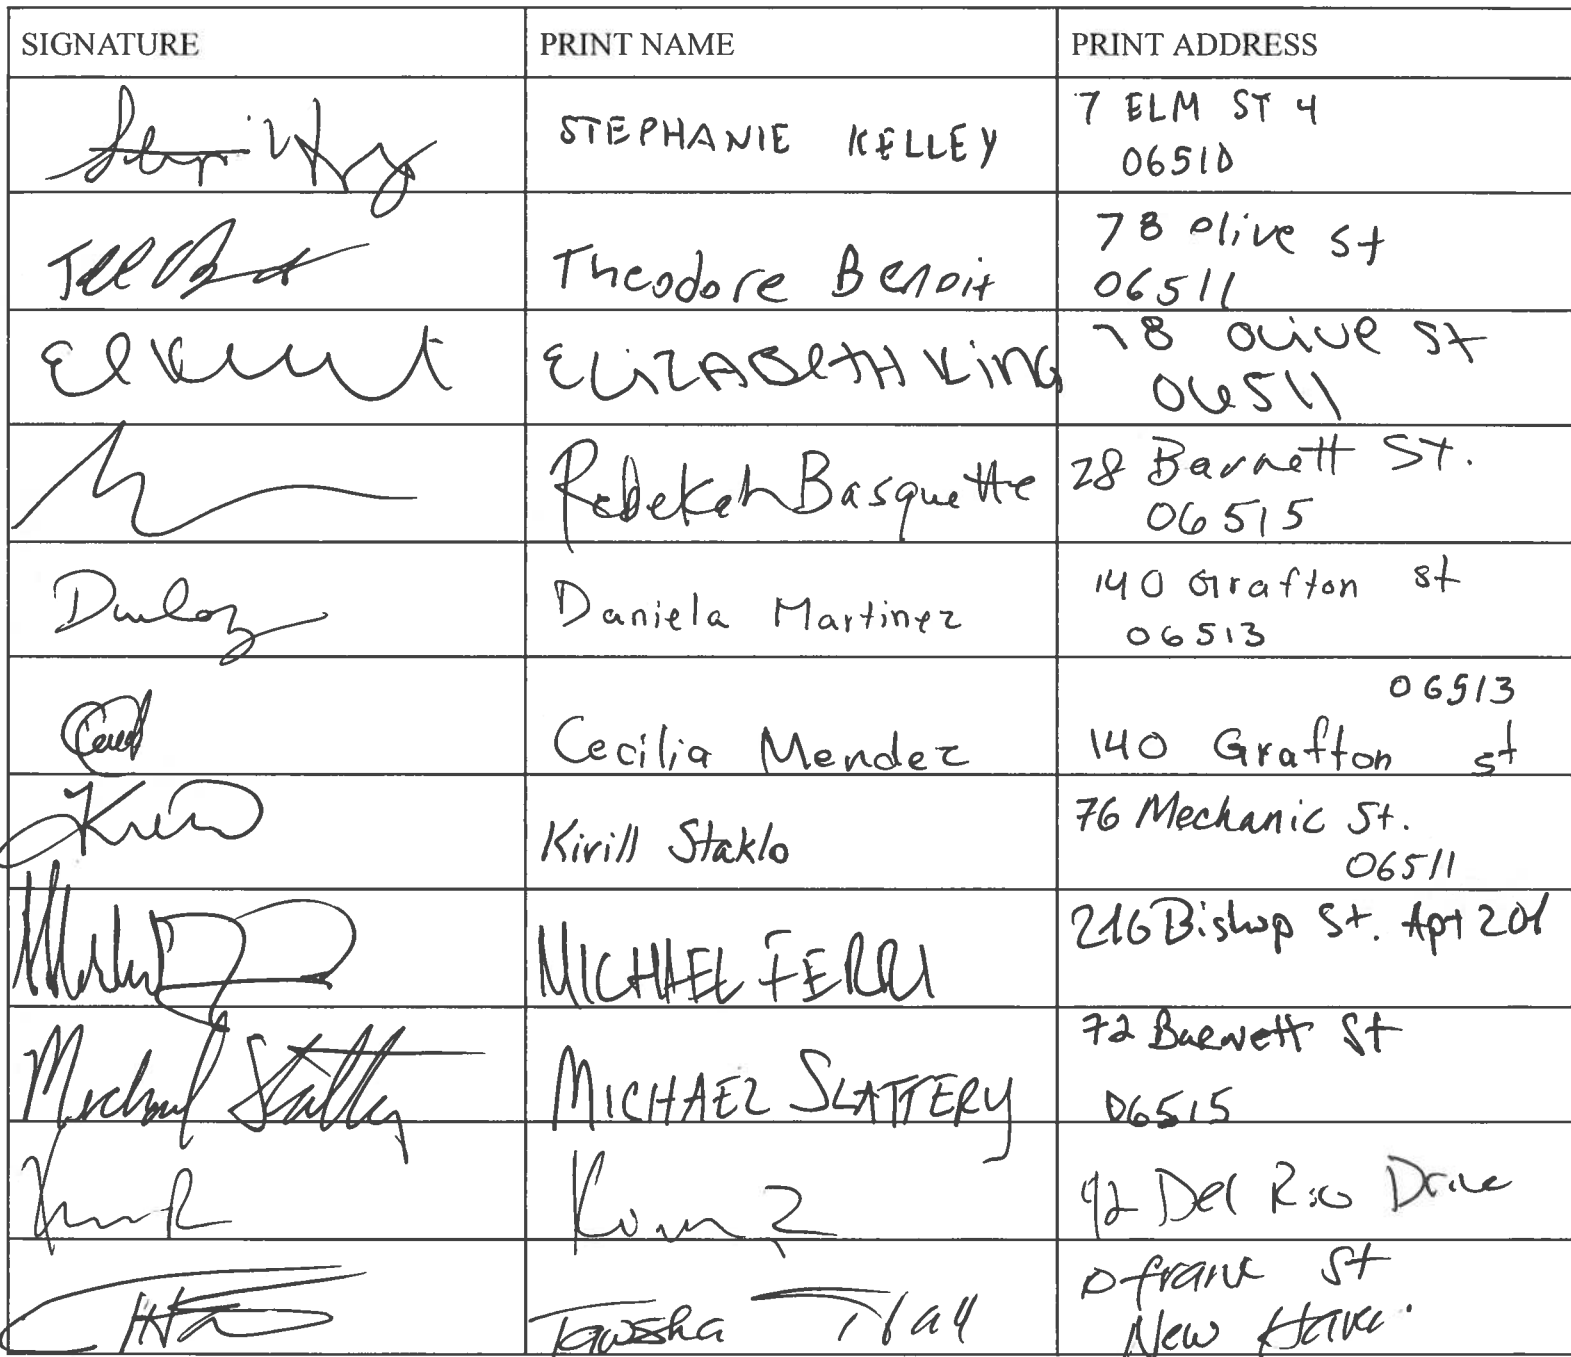 SIGNATURE PRINT NAME PRINT ADDRESS
STEPHANIE KELLEY 7 ELM ST 4
06510
Theodore Benoit 78 Olive St
06511
ELIZABETH KING 78 Olive St
06511
Rebekah Basquette 28 Barnett St.
06515
Daniela Martinez 140 Grafton st
06513
06513
Cecilia Mendez 140 Grafton st
Kirill Staklo 76 Mechanic St.
06511
MICHAEL FERRI 216 Bishop St. Apt 201
Michael Slattery MICHAEL SLATTERY 72 Barnett St
06515
92 Del Rio Drive
St
New Haven